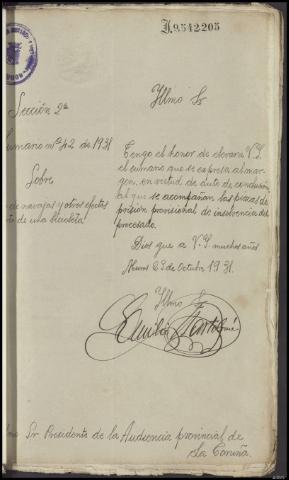 I.9542205
Illmo Sr
Sección 2ª
Sumario nº 42 de 1931
Sobre
de navajas y otros efectos
de una bicicleta
Tengo el honor de elevar a V.I.
el sumario que se expresa al mar-
gen, en virtud de auto de conclusión,
al que se acompañan las piezas de
prisión provisional de insolvencia del
procesado.
Dios que a V.I. muchos años
23 de Octubre 1931.
Illmo Sr
Emilio
Sr Presidente de la Audiencia provincial de
La Coruña.